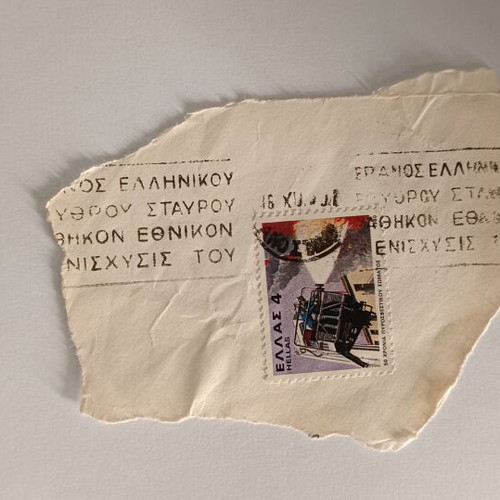 ΝΟΣ ΕΛΛΗΝΙΚΟΥ
ΥΘΡΟΥ ΣΤΑΥΡΟΥ
ΘΗΚΟΝ ΕΘΝΙΚΟΝ
ΝΙΣΧΥΣΙΣ ΤΟΥ
ΕΡΑΝΟΣ ΕΛΛΗΝΙΚ
ΡΥΘΡΟΥ ΣΤΑΥ
ΘΗΚΟΝ ΕΘΝ
ΕΝΙΣΧΥΣΙΣ Τ
16 XII
ΕΛΛΑΣ 4
HELLAS
50 ΧΡΟΝΙΑ ΠΥΡΟΣΒΕΣΤΙΚΟΥ ΣΩΜΑΤΟΣ